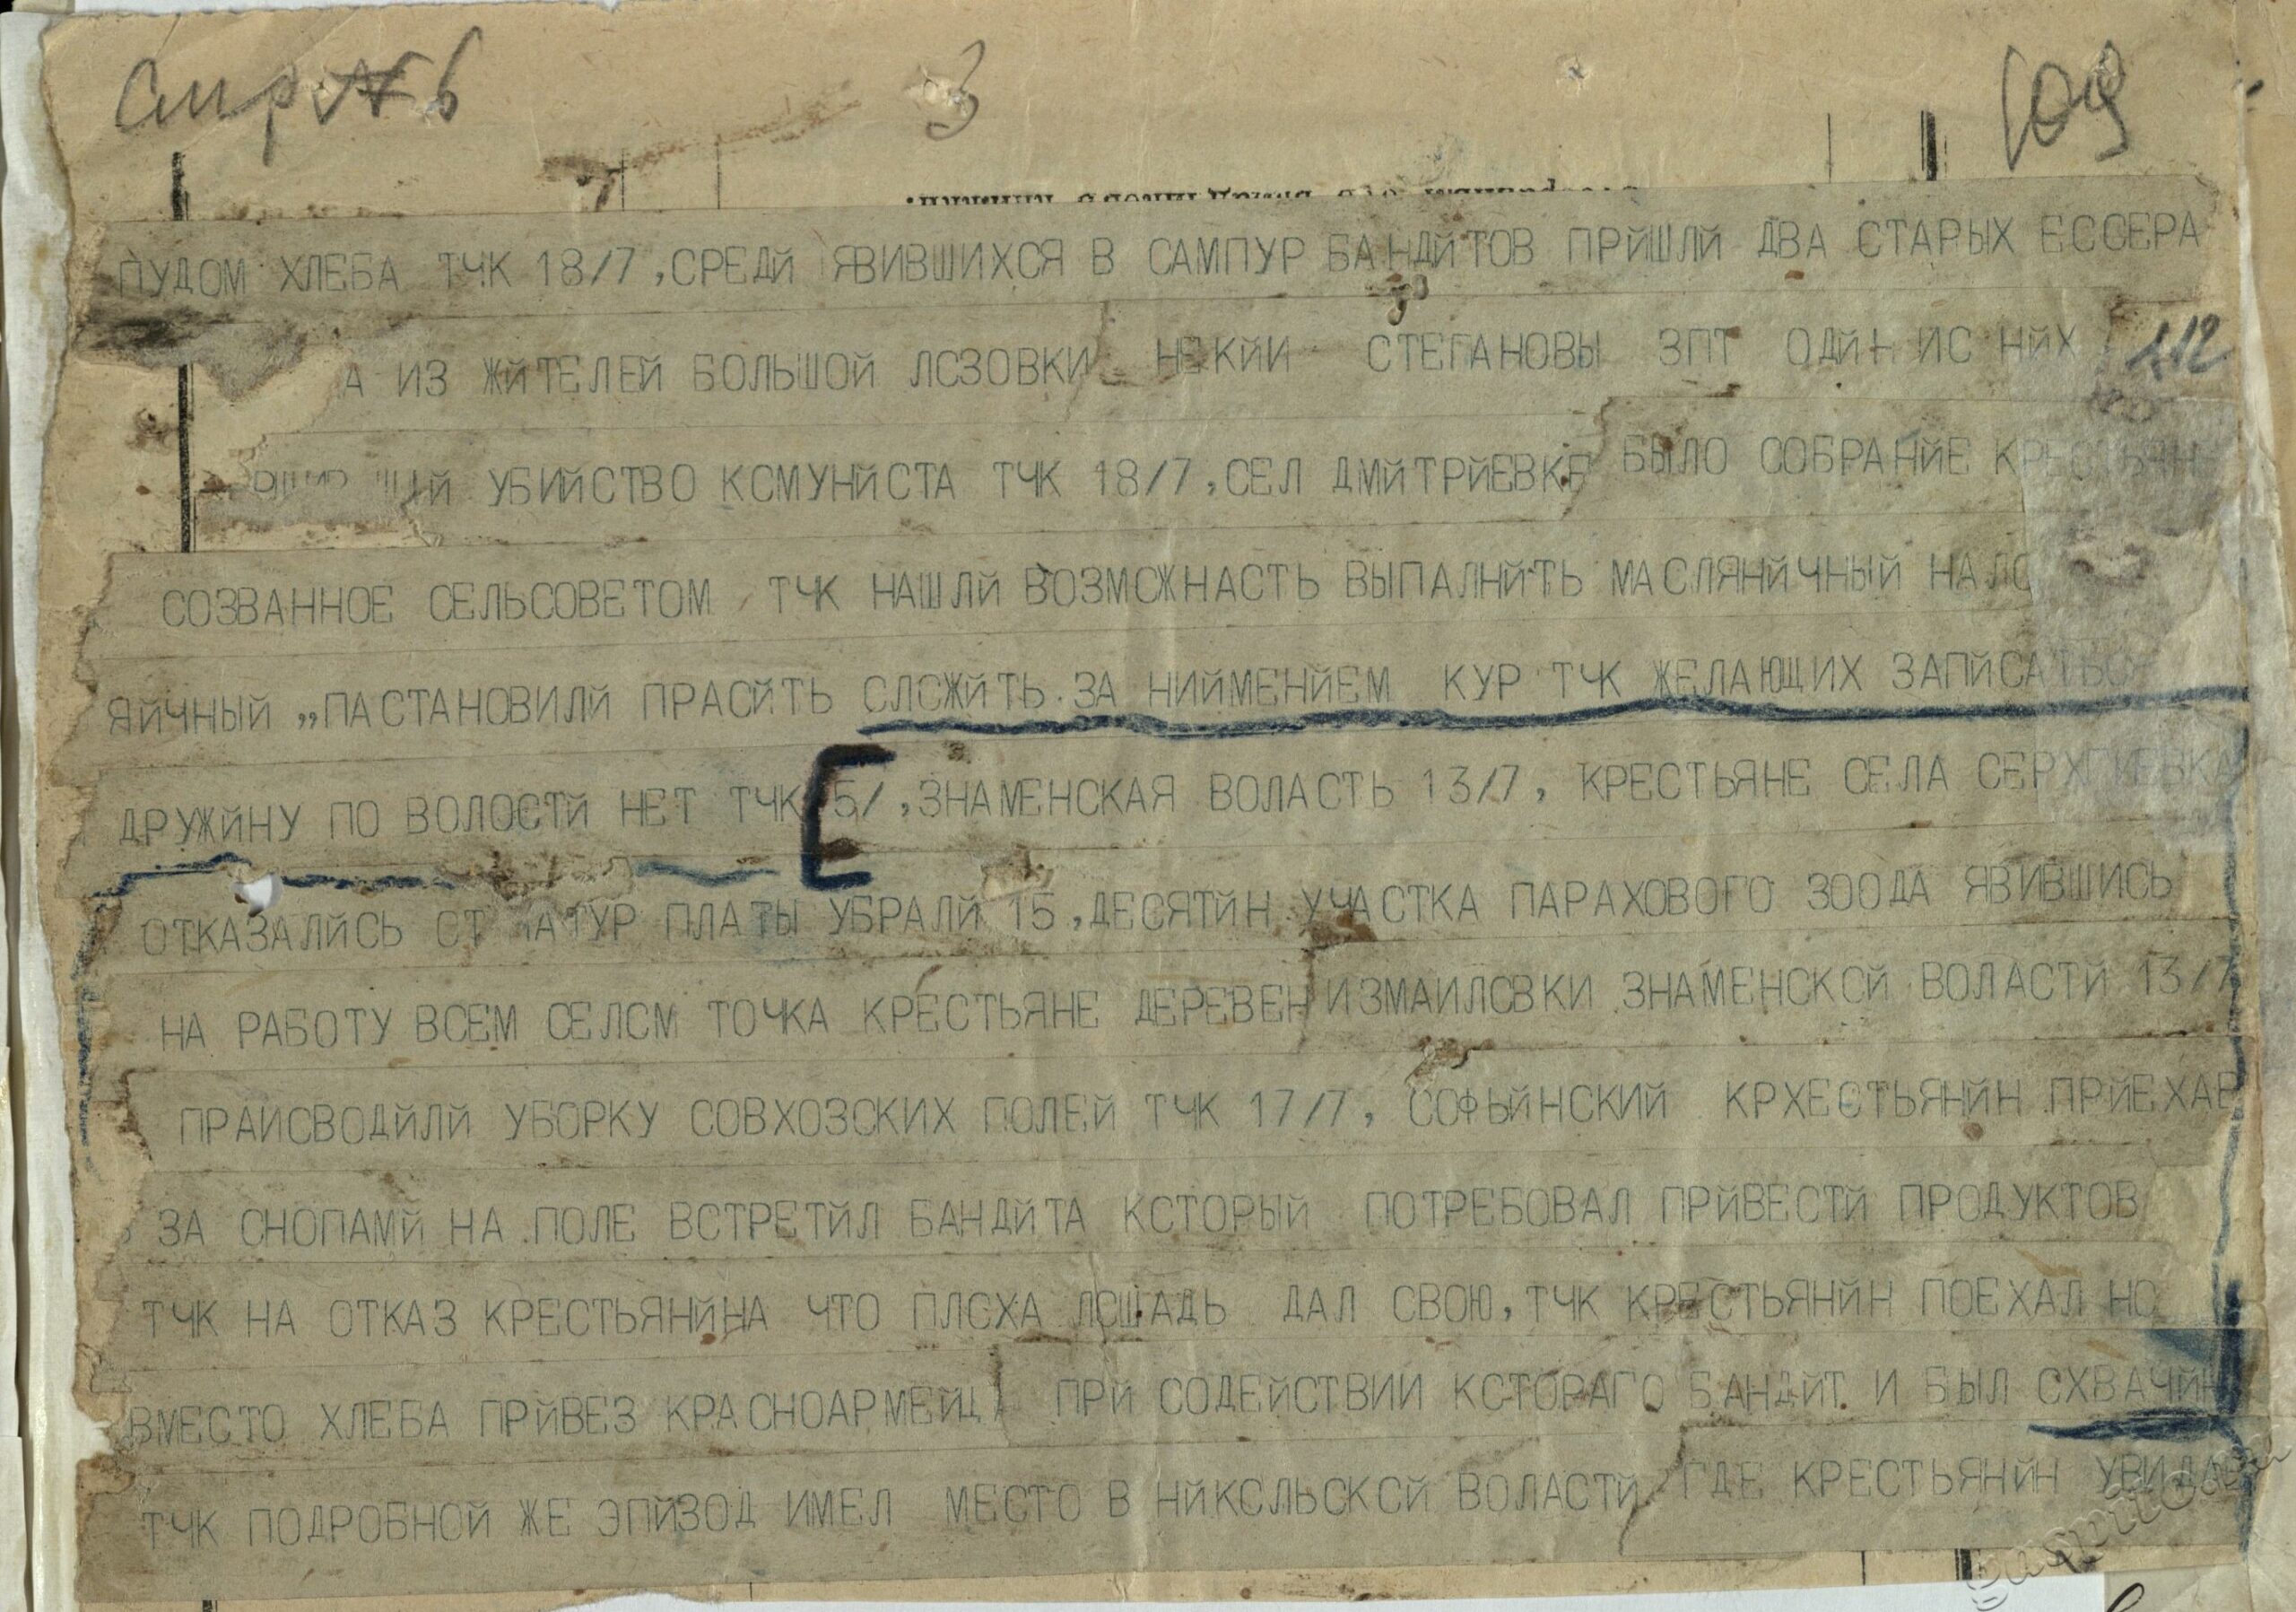 стр № 6 3 109
ПУДОМ ХЛЕБА ТЧК 18/7,СРЕДЙ ЯВИВШИХСЯ В САМПУР БАНДЙТОВ ПРЙШЛЙ ДВА СТАРЫХ ЕССЕРА
А ИЗ ЖЙТЕЛЕЙ БОЛЬШОЙ ЛСЗОВКИ НЕКЙИ СТЕПАНОВЫ ЗПТ ОДЙН ИС НЙХ 112
УБИЙСТВО КСМУНЙСТА ТЧК 18/7,СЕЛ ДМЙТРЙЕВКЕ БЫЛО СОБРАНЙЕ КРЕСТЬЯН
СОЗВАННОЕ СЕЛЬСОВЕТОМ ТЧК НАШЛЙ ВОЗМСЖНАСТЬ ВЫПАЛНЙТЬ МАСЛЯНЙЧНЫЙ НАЛО
ЯЙЧНЫЙ „ПАСТАНОВИЛЙ ПРАСЙТЬ СЛСЖЙТЬ ЗА НИЙМЕНЙЕМ КУР ТЧК ЖЕЛАЮЩИХ ЗАПЙСАТЬС
ДРУЖЙНУ ПО ВОЛОСТЙ НЕТ ТЧК 5/,ЗНАМЕНСКАЯ ВОЛАСТЬ 13/7, КРЕСТЬЯНЕ СЕЛА СЕРХГИЕВКА
ОТКАЗАЛЙСЬ СТ НАТУР ПЛАТЫ УБРАЛЙ 15,ДЕСЯТЙН УЧАСТКА ПАРАХОВОГО ЗООДА ЯВИВШИСЬ
НА РАБОТУ ВСЕМ СЕЛСМ ТОЧКА КРЕСТЬЯНЕ ДЕРЕВЕН ИЗМАИЛСВКИ ЗНАМЕНСКСЙ ВОЛАСТЙ 13/7
ПРАИСВОДЙЛЙ УБОРКУ СОВХОЗСКИХ ПОЛЕЙ ТЧК 17/7, СОФЬЙНСКИЙ КРХЕСТЬЯНЙН ПРЙЕХАВ
ЗА СНОПАМЙ НА ПОЛЕ ВСТРЕТЙЛ БАНДЙТА КСТОРЫЙ ПОТРЕБОВАЛ ПРЙВЕСТЙ ПРОДУКТОВ
ТЧК НА ОТКАЗ КРЕСТЬЯНЙНА ЧТО ПЛСХА ЛСШАДЬ ДАЛ СВОЮ,ТЧК КРЕСТЬЯНЙН ПОЕХАЛ НС
ВМЕСТО ХЛЕБА ПРЙВЕЗ КРАСНОАРМЕЙЦА ПРЙ СОДЕЙСТВИИ КСТОРАГО БАНДЙТ И БЫЛ СХВАЧЙН
ТЧК ПОДРОБНОЙ ЖЕ ЭПЙЗОД ИМЕЛ МЕСТО В НЙКСЛЬСКСЙ ВОЛАСТЙ ГДЕ КРЕСТЬЯНЙН УВИДАВ